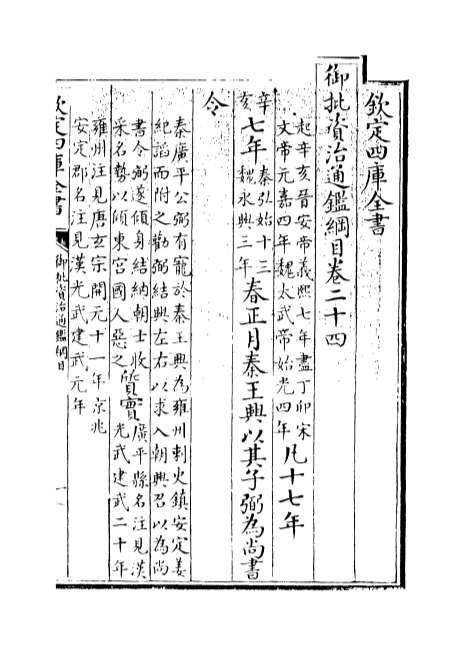 欽定四庫全書
御批資治通鑑綱目卷二十四
起辛亥晉安帝義熙七年盡丁卯宋
文帝元嘉四年魏太武帝始光四年凡十七年
辛亥七年秦弘始十三魏永興三年春正月秦王興以其子弼為尚書
令
秦廣平公弼有寵於秦王興為雍州刺史鎮安定姜
紀諂而附之勸弼結興左右以求入朝興召以為尚
書令弼遂傾身結納朝士收
采名勢以傾東宮國人惡之質實廣平縣名注見漢
光武建武二十年
雍州注見唐玄宗開元十一年京兆
安定郡名注見漢光武建武元年
欽定四庫全書
御批資治通鑑綱目
一